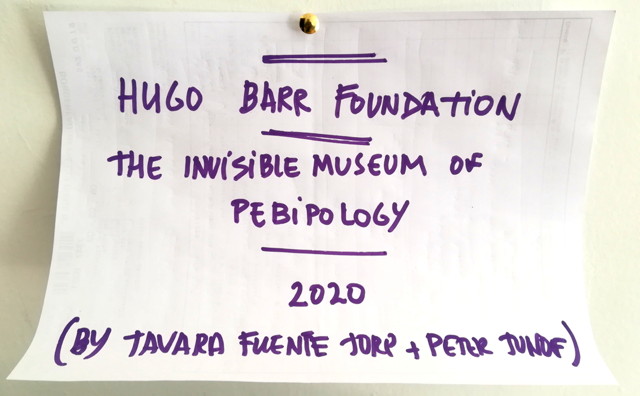 HUGO BARR FOUNDATION
THE INVISIBLE MUSEUM OF
PEBIPOLOGY
2020
(BY TAVARA FUENTE JORP + PETER JUNOF)